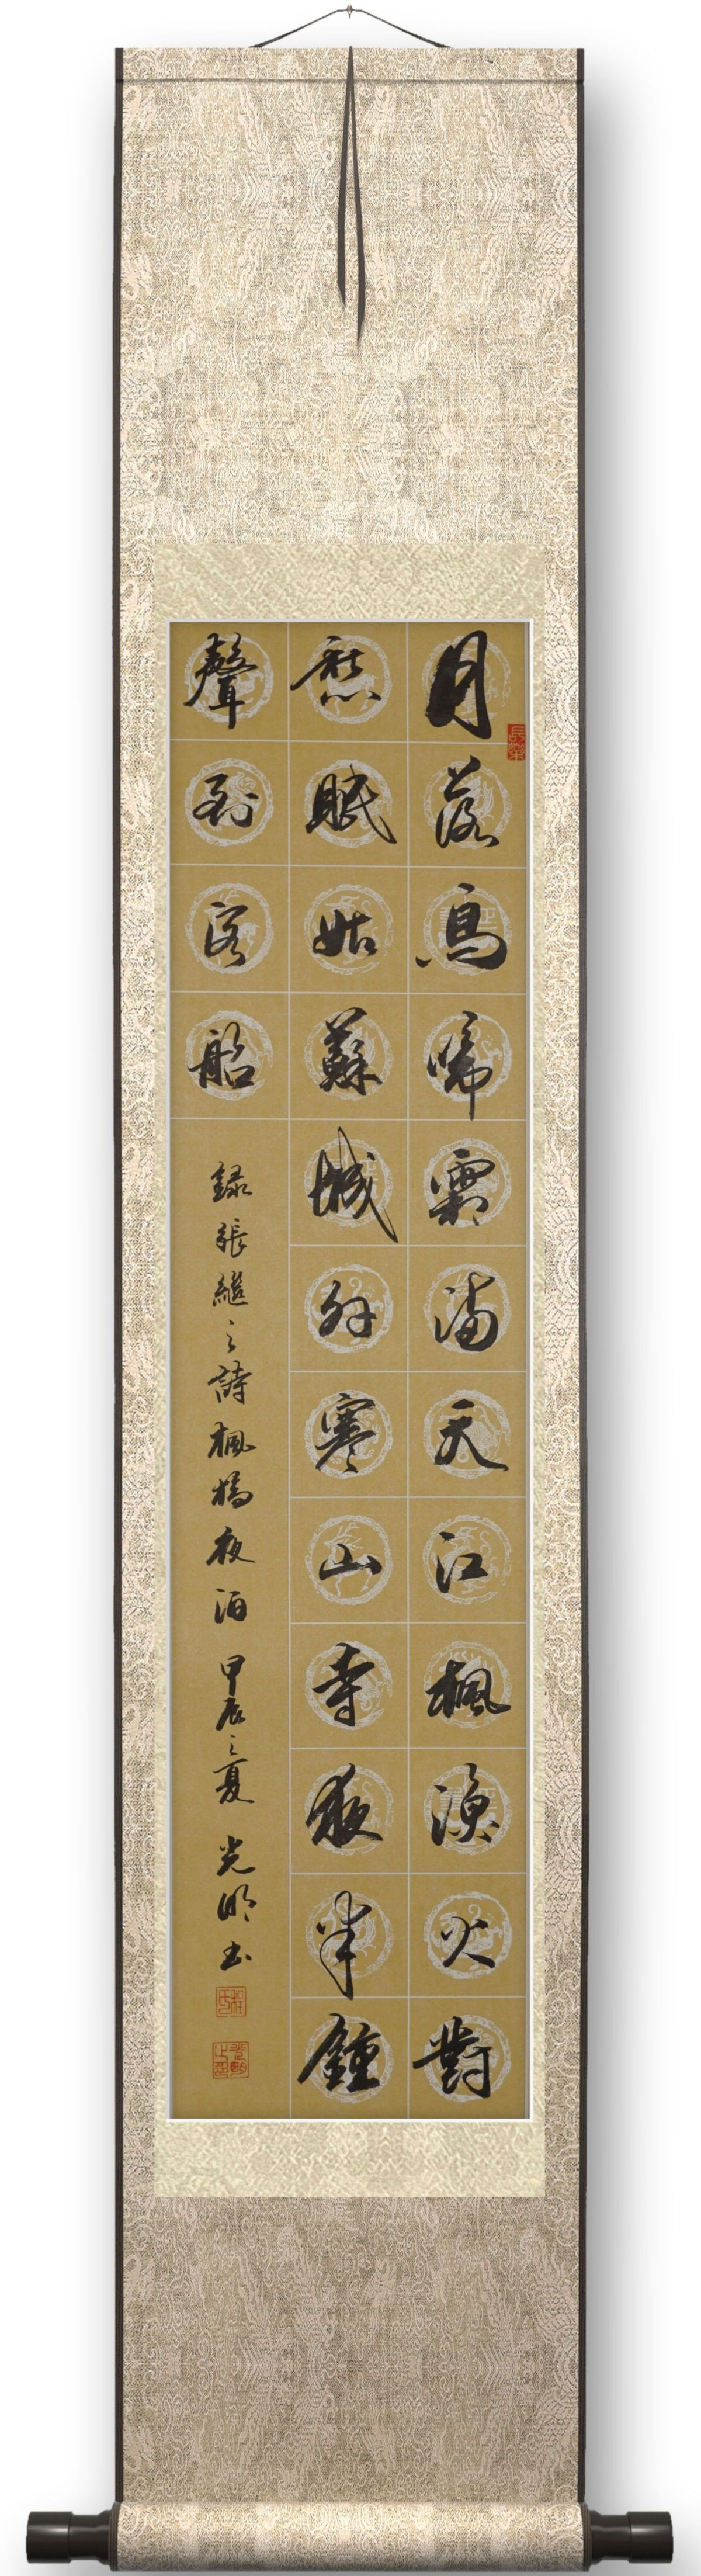 月落烏啼霜滿天江楓漁火對
愁眠姑蘇城外寒山寺夜半鍾
聲到客船
錄張繼之詩楓橋夜泊 甲辰之夏 光明書
長樂